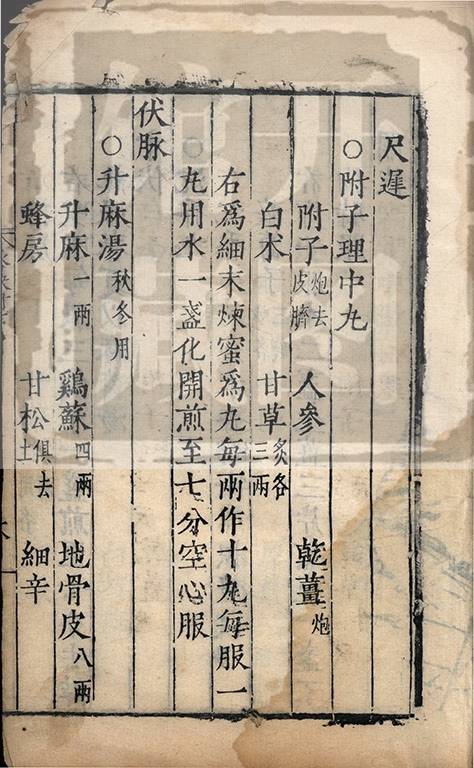 尺遲
○附子理中丸
附子炮去皮臍 人參 乾薑炮
白朮 甘草炙各三兩
右爲細末煉蜜爲丸每兩作十丸每服一
丸用水一盞化開煎至七分空心服
伏脉
○升麻湯秋冬用
升麻一兩 鷄蘇四兩 地骨皮八兩
蜂房 甘松俱去土 細辛